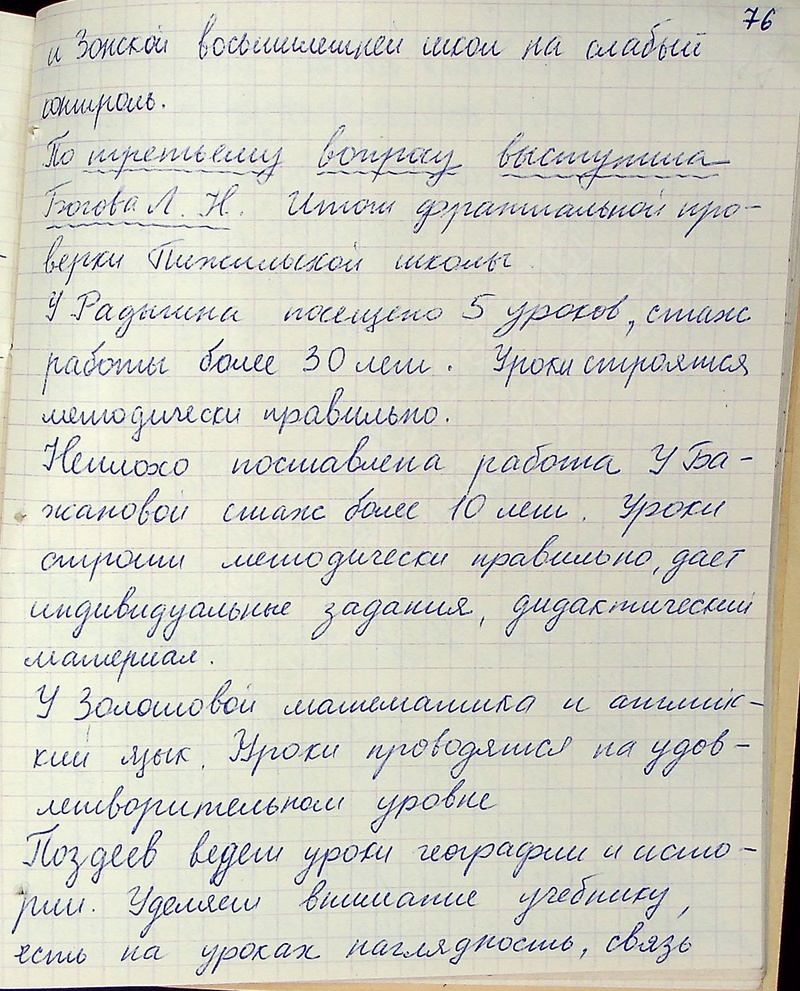 76
и Зонской восьмилетней школ на слабый
контроль.
По третьему вопросу выступила
Богова Л. Н. Итоги фронтальной про-
верки Пижильской школы.
У Радыгина посещено 5 уроков, стаж
работы более 30 лет. Уроки строятся
методически правильно.
Неплохо поставлена работа У Ба-
жановой стаж более 10 лет. Уроки
строит методически правильно, дает
индивидуальные задания, дидактический
материал.
У Золотовой математика и англий-
кий язык. Уроки проводятся на удов-
летворительном уровне
Поздеев ведет уроки географии и исто-
рии. Уделяет внимание учебнику,
есть на уроках наглядность, связь